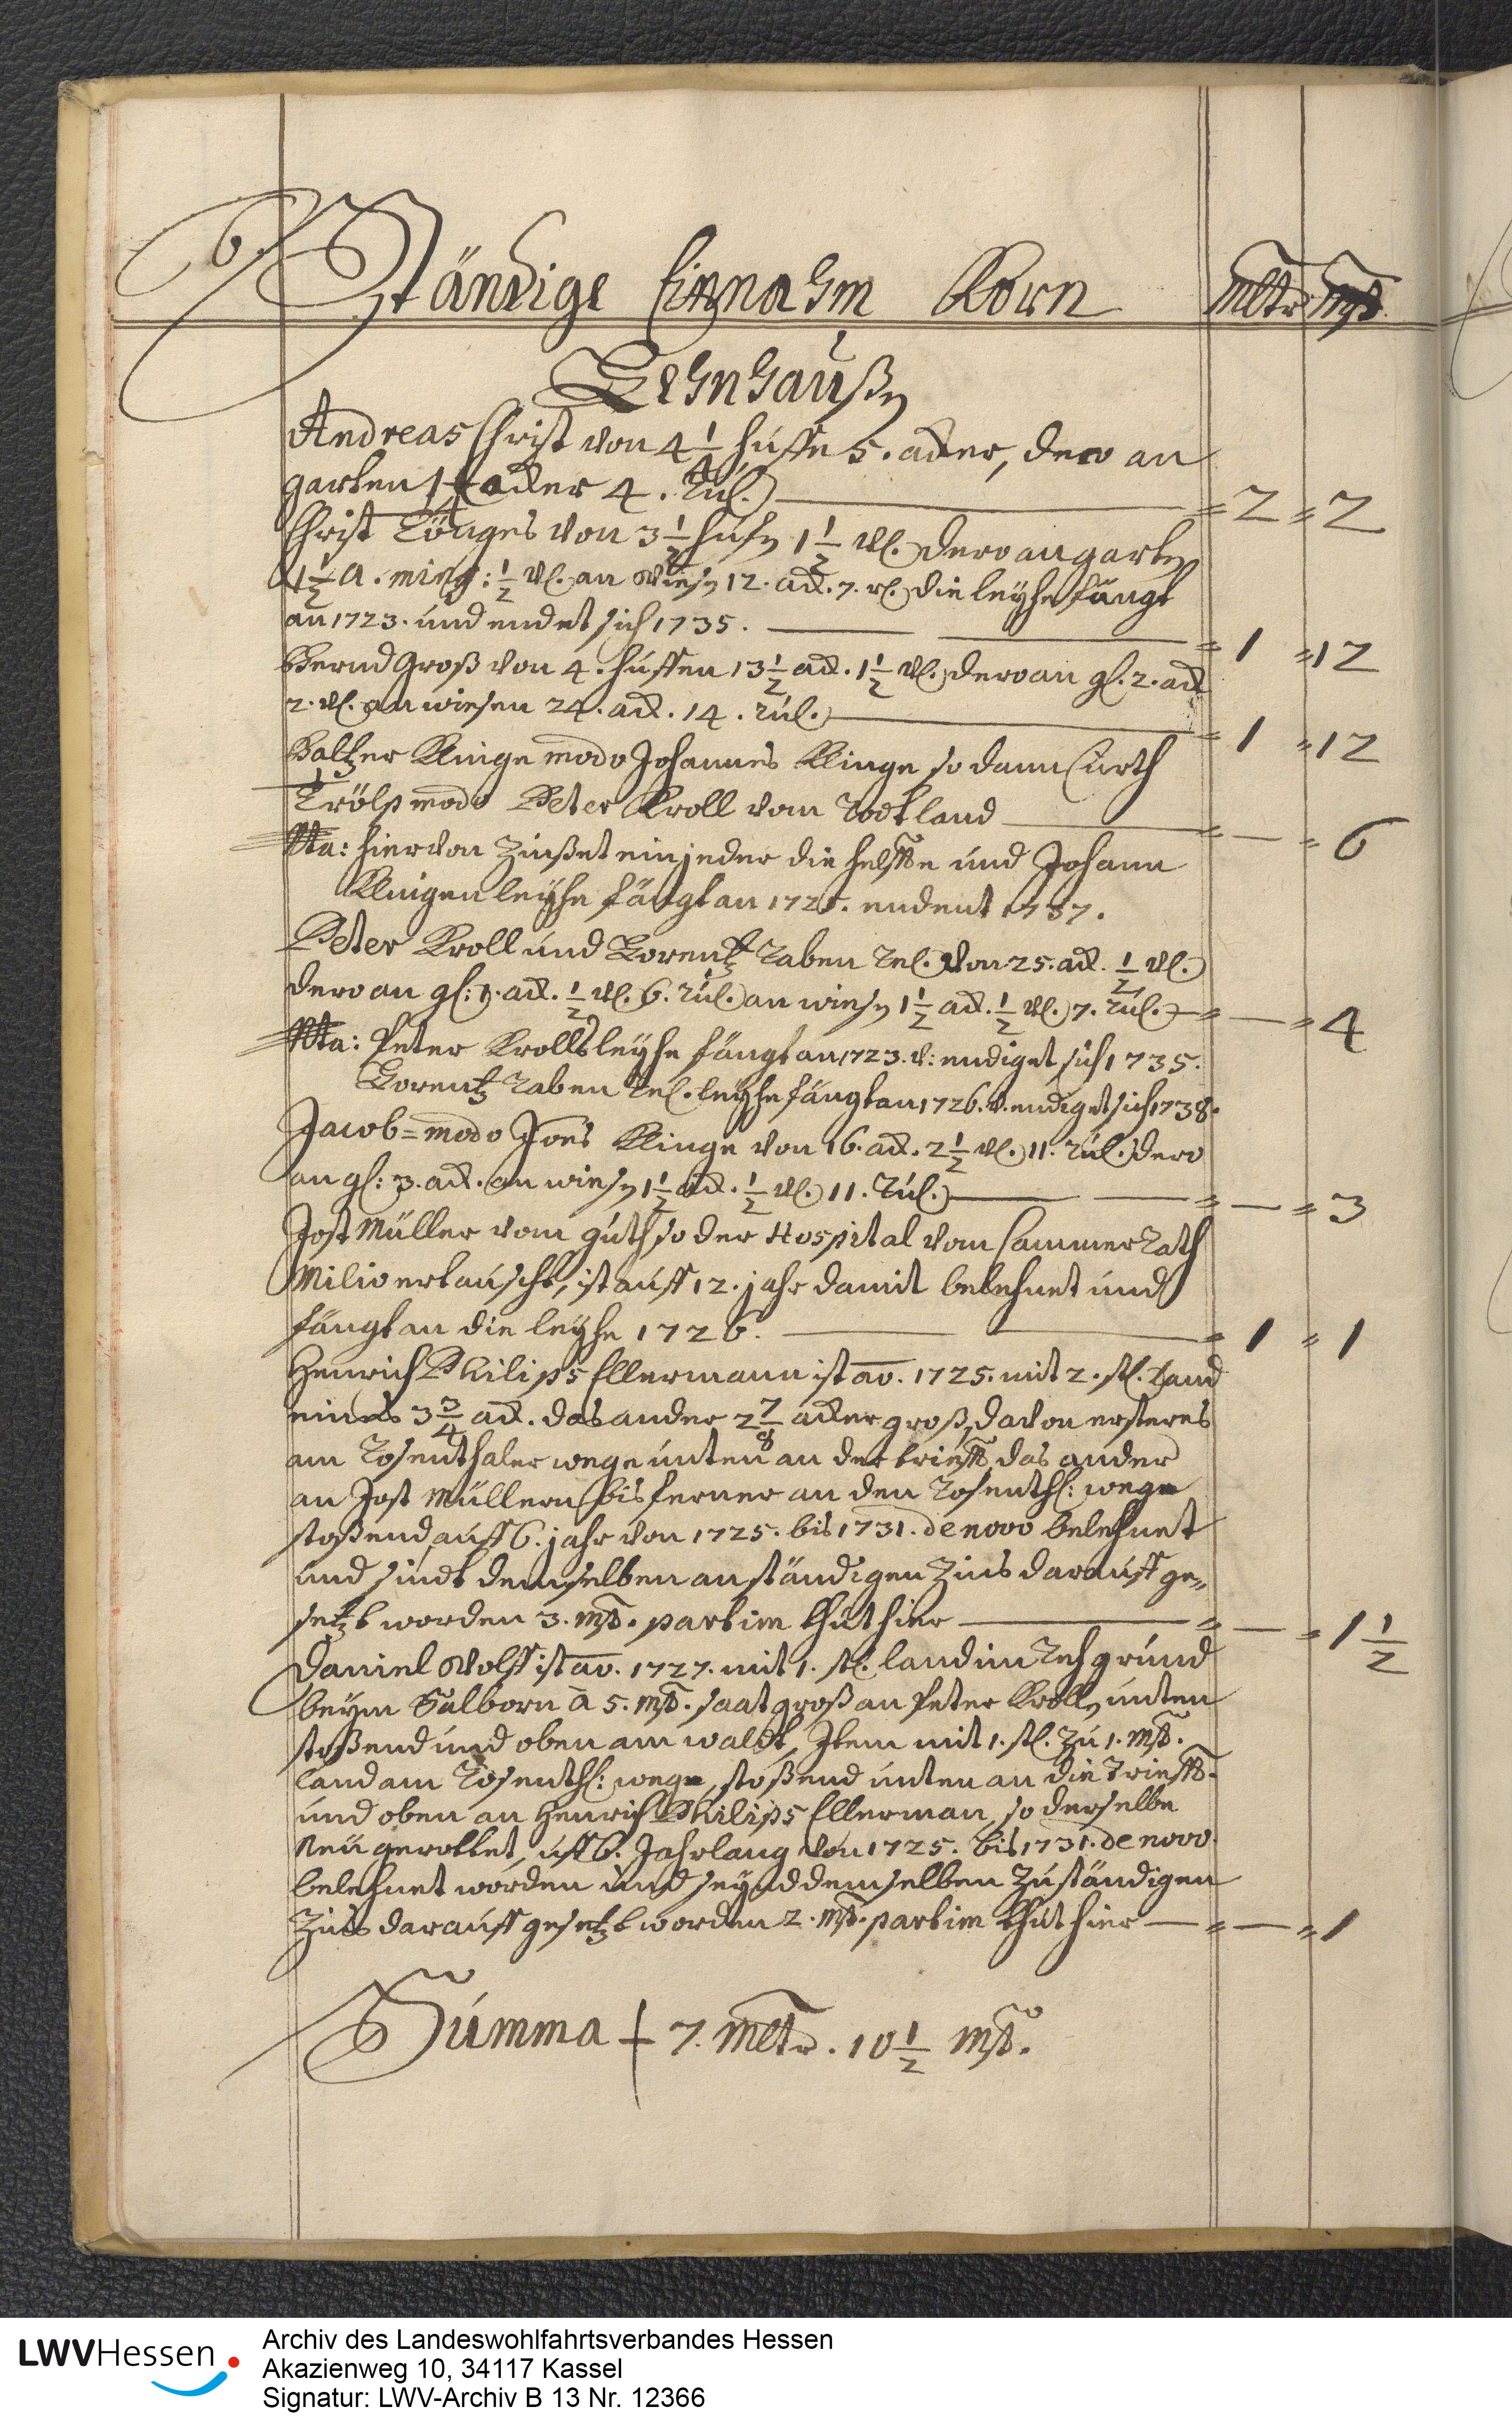 6
Ständige Einnahm Korn Mltr: Mß.
Lehnhaußen
Andreas Christ von 4 1/4 huffe 5. acker, dero an
garten 1 1/4 acker 4. Rut. = 2 = 2
Christ Tönges von 3 1/2 hufen 1 1/2 vl. dero an garten
1 1/2 a. ming: 1/2 vl. an Wiesen 12. ack. 7. rt. die leyhe fängt
an 1723. und endet sich 1735. = 1 = 12
Bernd Groß von 4. huffen 13 1/2 ack. 1 1/2 vl. dero an gt. 2. ack
2. vl. an wiesen 24. ack. 14. rut. = 1 = 12
Baltzer Klinge modo Johannes Klinge so dann Curth
Trölß modo Peter Kroll vom Rodtland = — = 6
Nta: hiervon Zinßet ein jeder die helffte und Johann
Klingen leyhe fängt an 1725. endent 1737.
Peter Kroll und Lorentz Raben Rel. von 25. ack. 1/2 vl.
dero an gt: 9. ack. 1/2 vl. 6. rut. an wiesen 1 1/2 ack. 1/2 vl. 7. rut. = — = 4
Nta: Peter Krolls leyhe fängt an 1723. v: endiget sich 1735.
Lorentz Raben Rel. leyhe fängt an 1726. v. endiget sich 1738.
Jacob = modo Joēs Klinge von 16. ack. 2 1/2 vl. 11. rut. dero
an gt: 3. ack. an wiesen 1 1/2 ack. 1/2 vl. 11. Rut. = — = 3
Jost Müller vom guth so der Hospital vom Cammer Rath
Milio ertauscht, ist auff 12. jahr damit belehnet und
fängt an die leyhe 1726. = 1 = 1
Henrich Philips Ellermann ist ao. 1725. mit 2. st. Land
eines 3 3/4 ack. das ander 2 7/8 acker groß, davon ersteres
am Rosenthaler wege unten an der trieffth das ander
an Jost Müllern bis ferner an den Rosenthl: wege
stoßend auff 6. jahr von 1725. bis 1731. de novo belehnet
und sindt demselben an ständigen Zins darauff ge„
setzt worden 3. mß. partim thut hier = — = 1 1/2
Daniel Wolff ist ao. 1727. mit 1. st. land im Rehgrund
beym Salborn à 5. mß. saat groß an Peter Krollen unten
stoßend und oben am waldt, Item mit 1. st. zu 1. mß.
land am Rosenthl: wege, stoßend unten an die Trieffth.
und oben an Henrich Philips Ellerman, so derselbe
Neu gerottet, uff 6. Jahr lang von 1725. bis 1731. de novo.
belehnet worden und seynd demselben zu ständigen
Zins darauff gesetzt worden 2. mß. partim thut hier = — = 1
Summa 7. Mltr. 10 1/2 mß.
LWVHessen
Archiv des Landeswohlfahrtsverbandes Hessen
Akazienweg 10, 34117 Kassel
Signatur: LWV-Archiv B 13 Nr. 12366